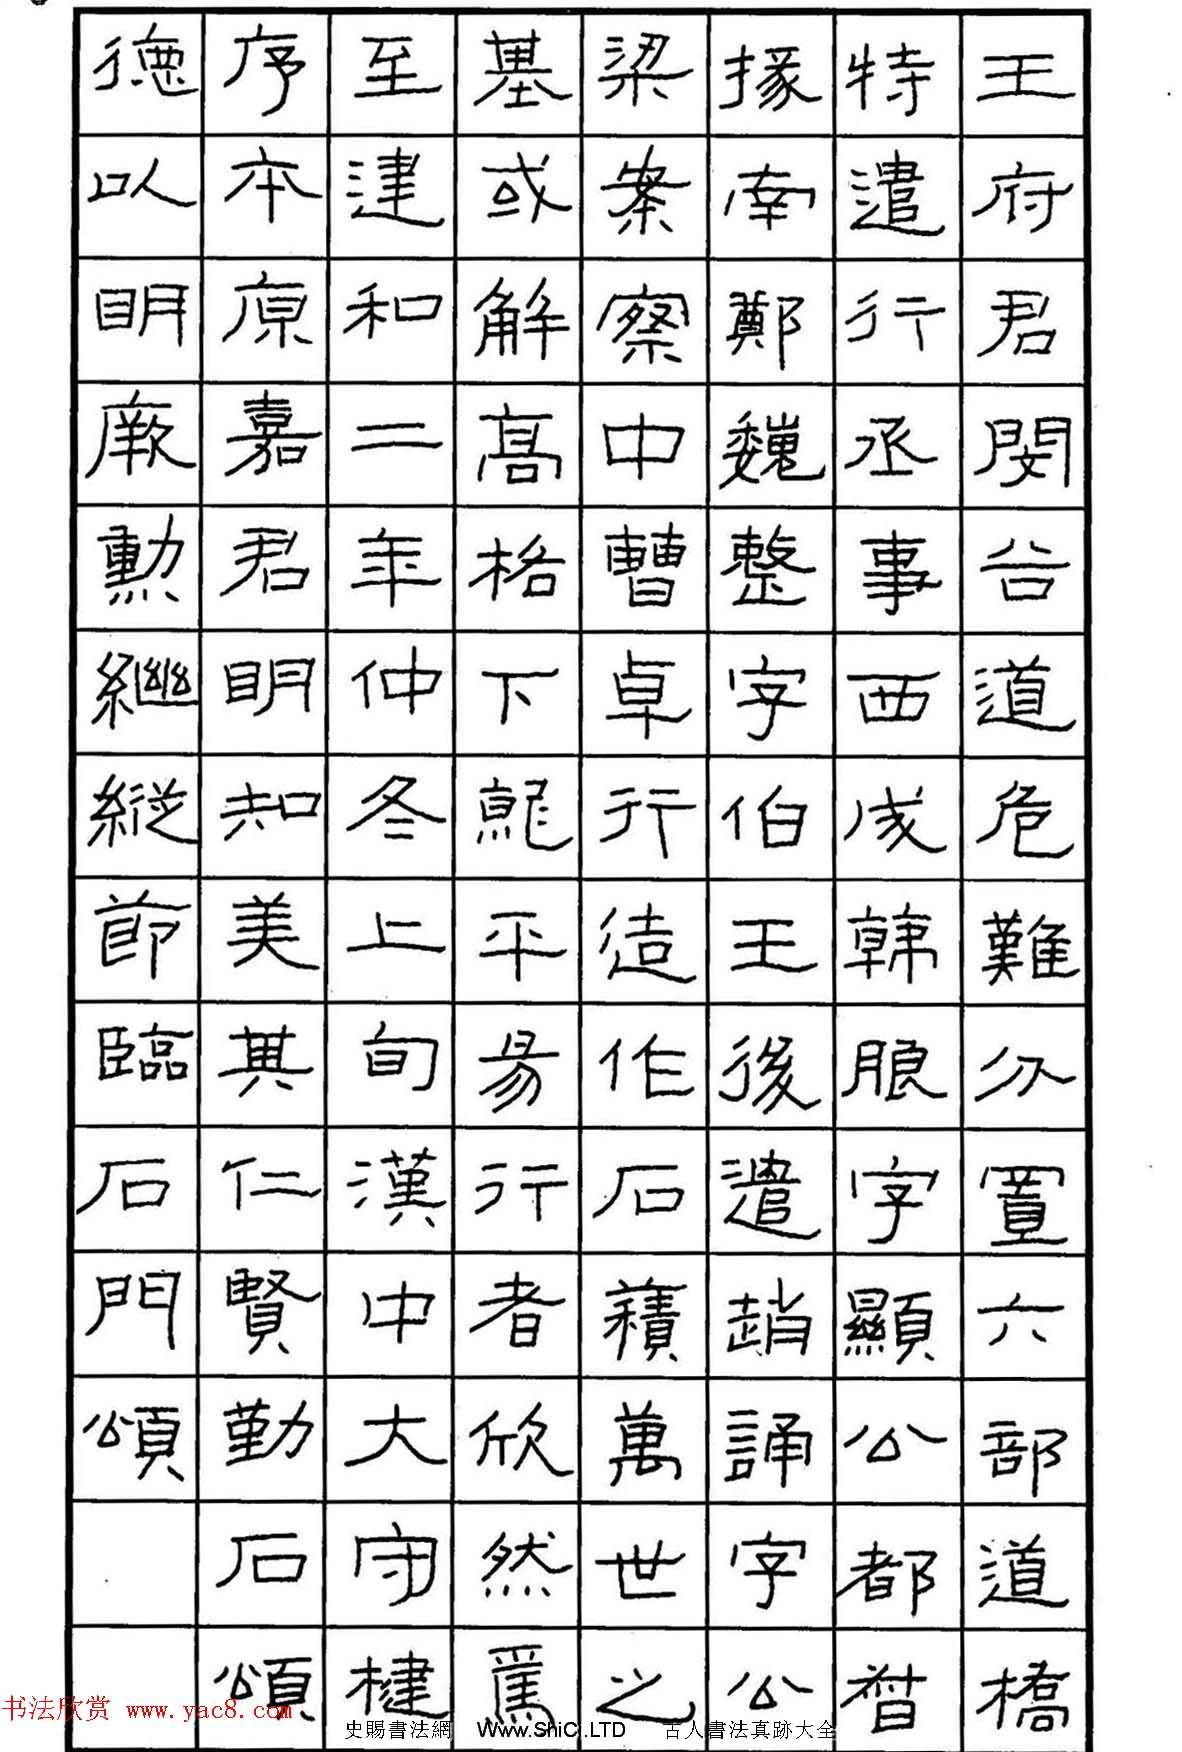 王府君閔谷道危難分置六部道橋
特遣行丞事西成韓朖字顯公都督
掾南鄭魏整字伯王後遣趙誦字公
梁案察中曹卓行造作石積萬世之
基或解高格下就平易行者欣然焉
至建和二年仲冬上旬漢中大守楗
序本原嘉君明知美其仁賢勤石頌
德以明厥勳繼縱節臨石門頌
书法欣赏 www.yac8.com
史賜書法網 Www.ShiC.LTD 古人書法真跡大全